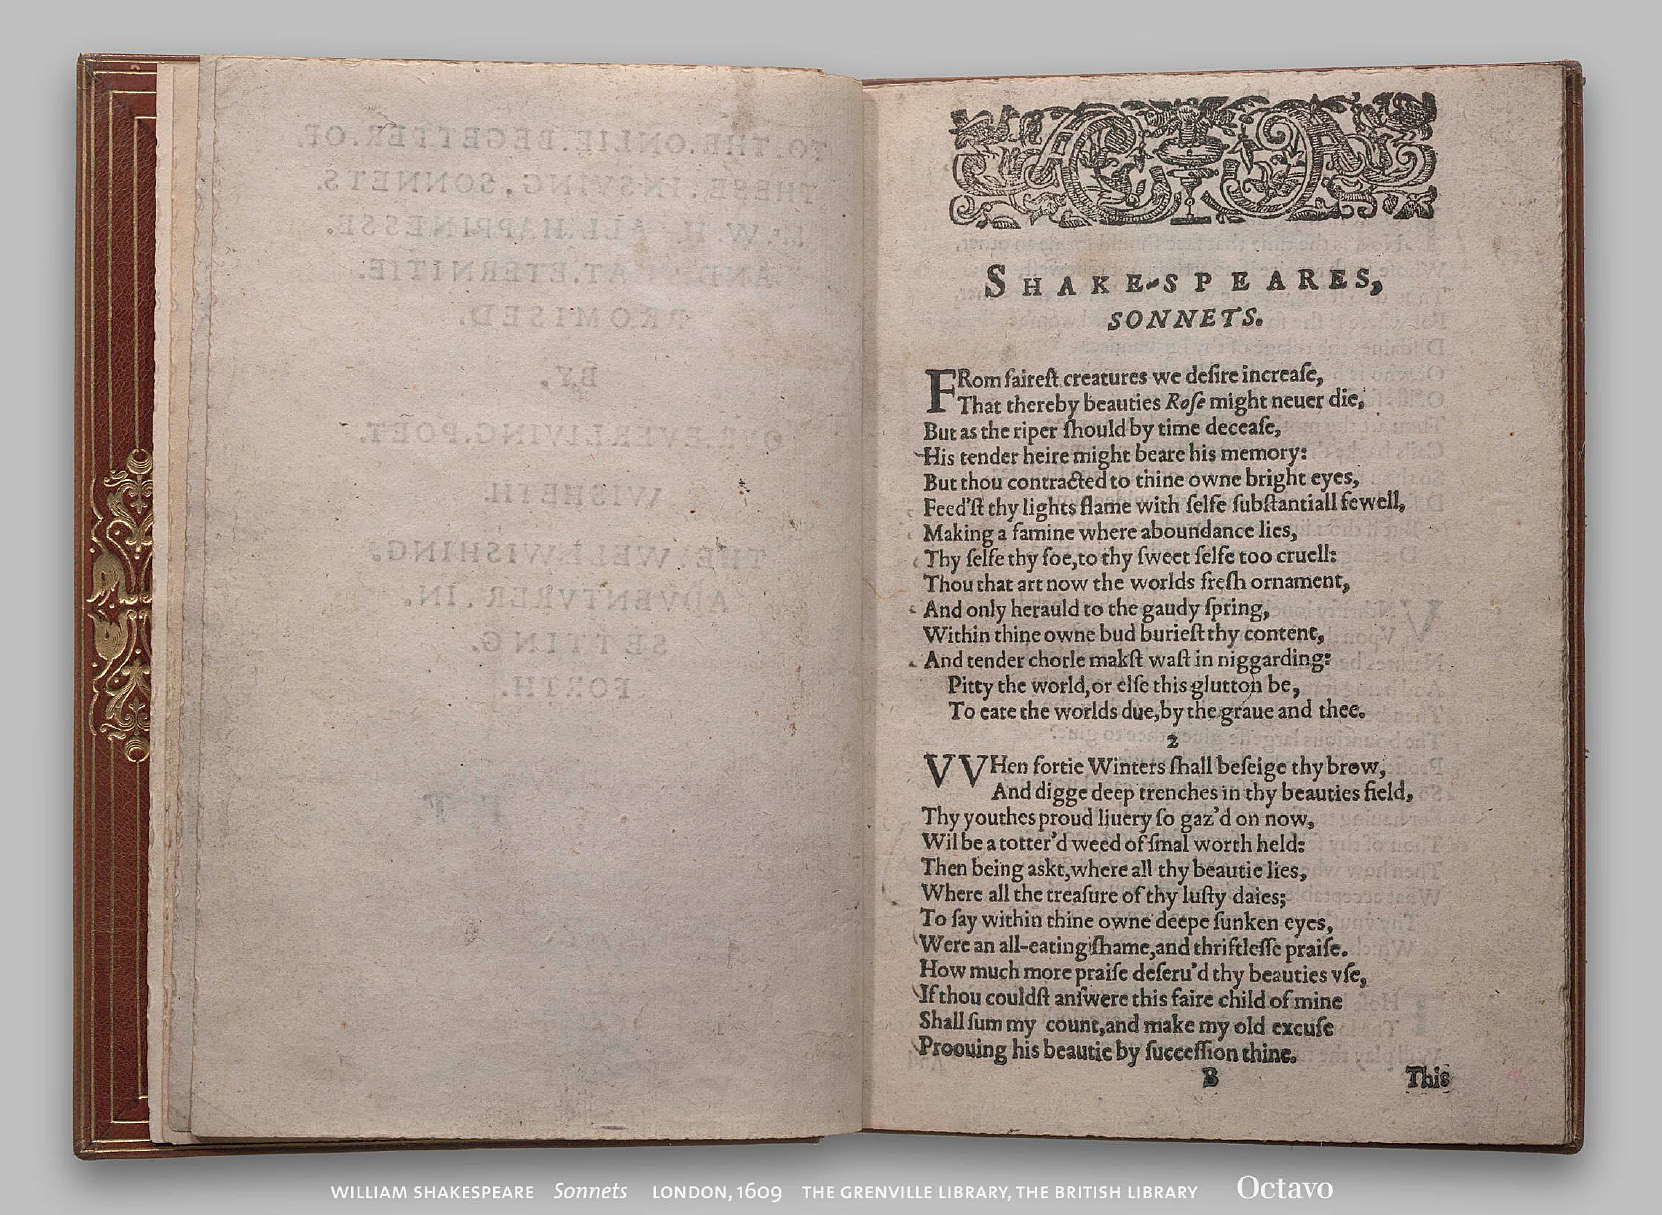 TO.THE.ONLIE.BEGETTER.OF.
THESE.INSVING.SONNETS.
Mr.W.H. ALL.HAPPINESSE.
AND.THAT.ETERNITIE.
PROMISED.
BY.
OVR.EVER-LIVING.POET.
WISHETH.
THE.WELL-WISHING.
ADVENTVRER.IN.
SETTING.
FORTH.
T. T.
SHAKE-SPEARES,
SONNETS.
FRom faireſt creatures we deſire increaſe,
That thereby beauties Roſe might neuer die,
But as the riper ſhould by time deceaſe,
His tender heire might beare his memory:
But thou contracted to thine owne bright eyes,
Feed'ſt thy lights flame with ſelfe ſubſtantiall fewell,
Making a famine where aboundance lies,
Thy ſelfe thy foe,to thy ſweet ſelfe too cruell:
Thou that art now the worlds freſh ornament,
And only herauld to the gaudy ſpring,
Within thine owne bud burieſt thy content,
And tender chorle makſt waſt in niggarding:
Pitty the world,or elſe this glutton be,
To eate the worlds due,by the graue and thee.
2
VVHen fortie Winters ſhall beſeige thy brow,
And digge deep trenches in thy beauties field,
Thy youthes proud liuery ſo gaz'd on now,
Wil be a totter'd weed of ſmal worth held:
Then being askt,where all thy beautie lies,
Where all the treaſure of thy luſty daies;
To ſay within thine owne deepe ſunken eyes,
Were an all-eating ſhame,and thriftleſſe praiſe.
How much more praiſe deſeru'd thy beauties vſe,
If thou couldſt anſwere this faire child of mine
Shall ſum my count,and make my old excuſe
Proouing his beautie by ſucceſſion thine.
B This
WILLIAM SHAKESPEARE Sonnets LONDON, 1609 THE GRENVILLE LIBRARY, THE BRITISH LIBRARY Octavo